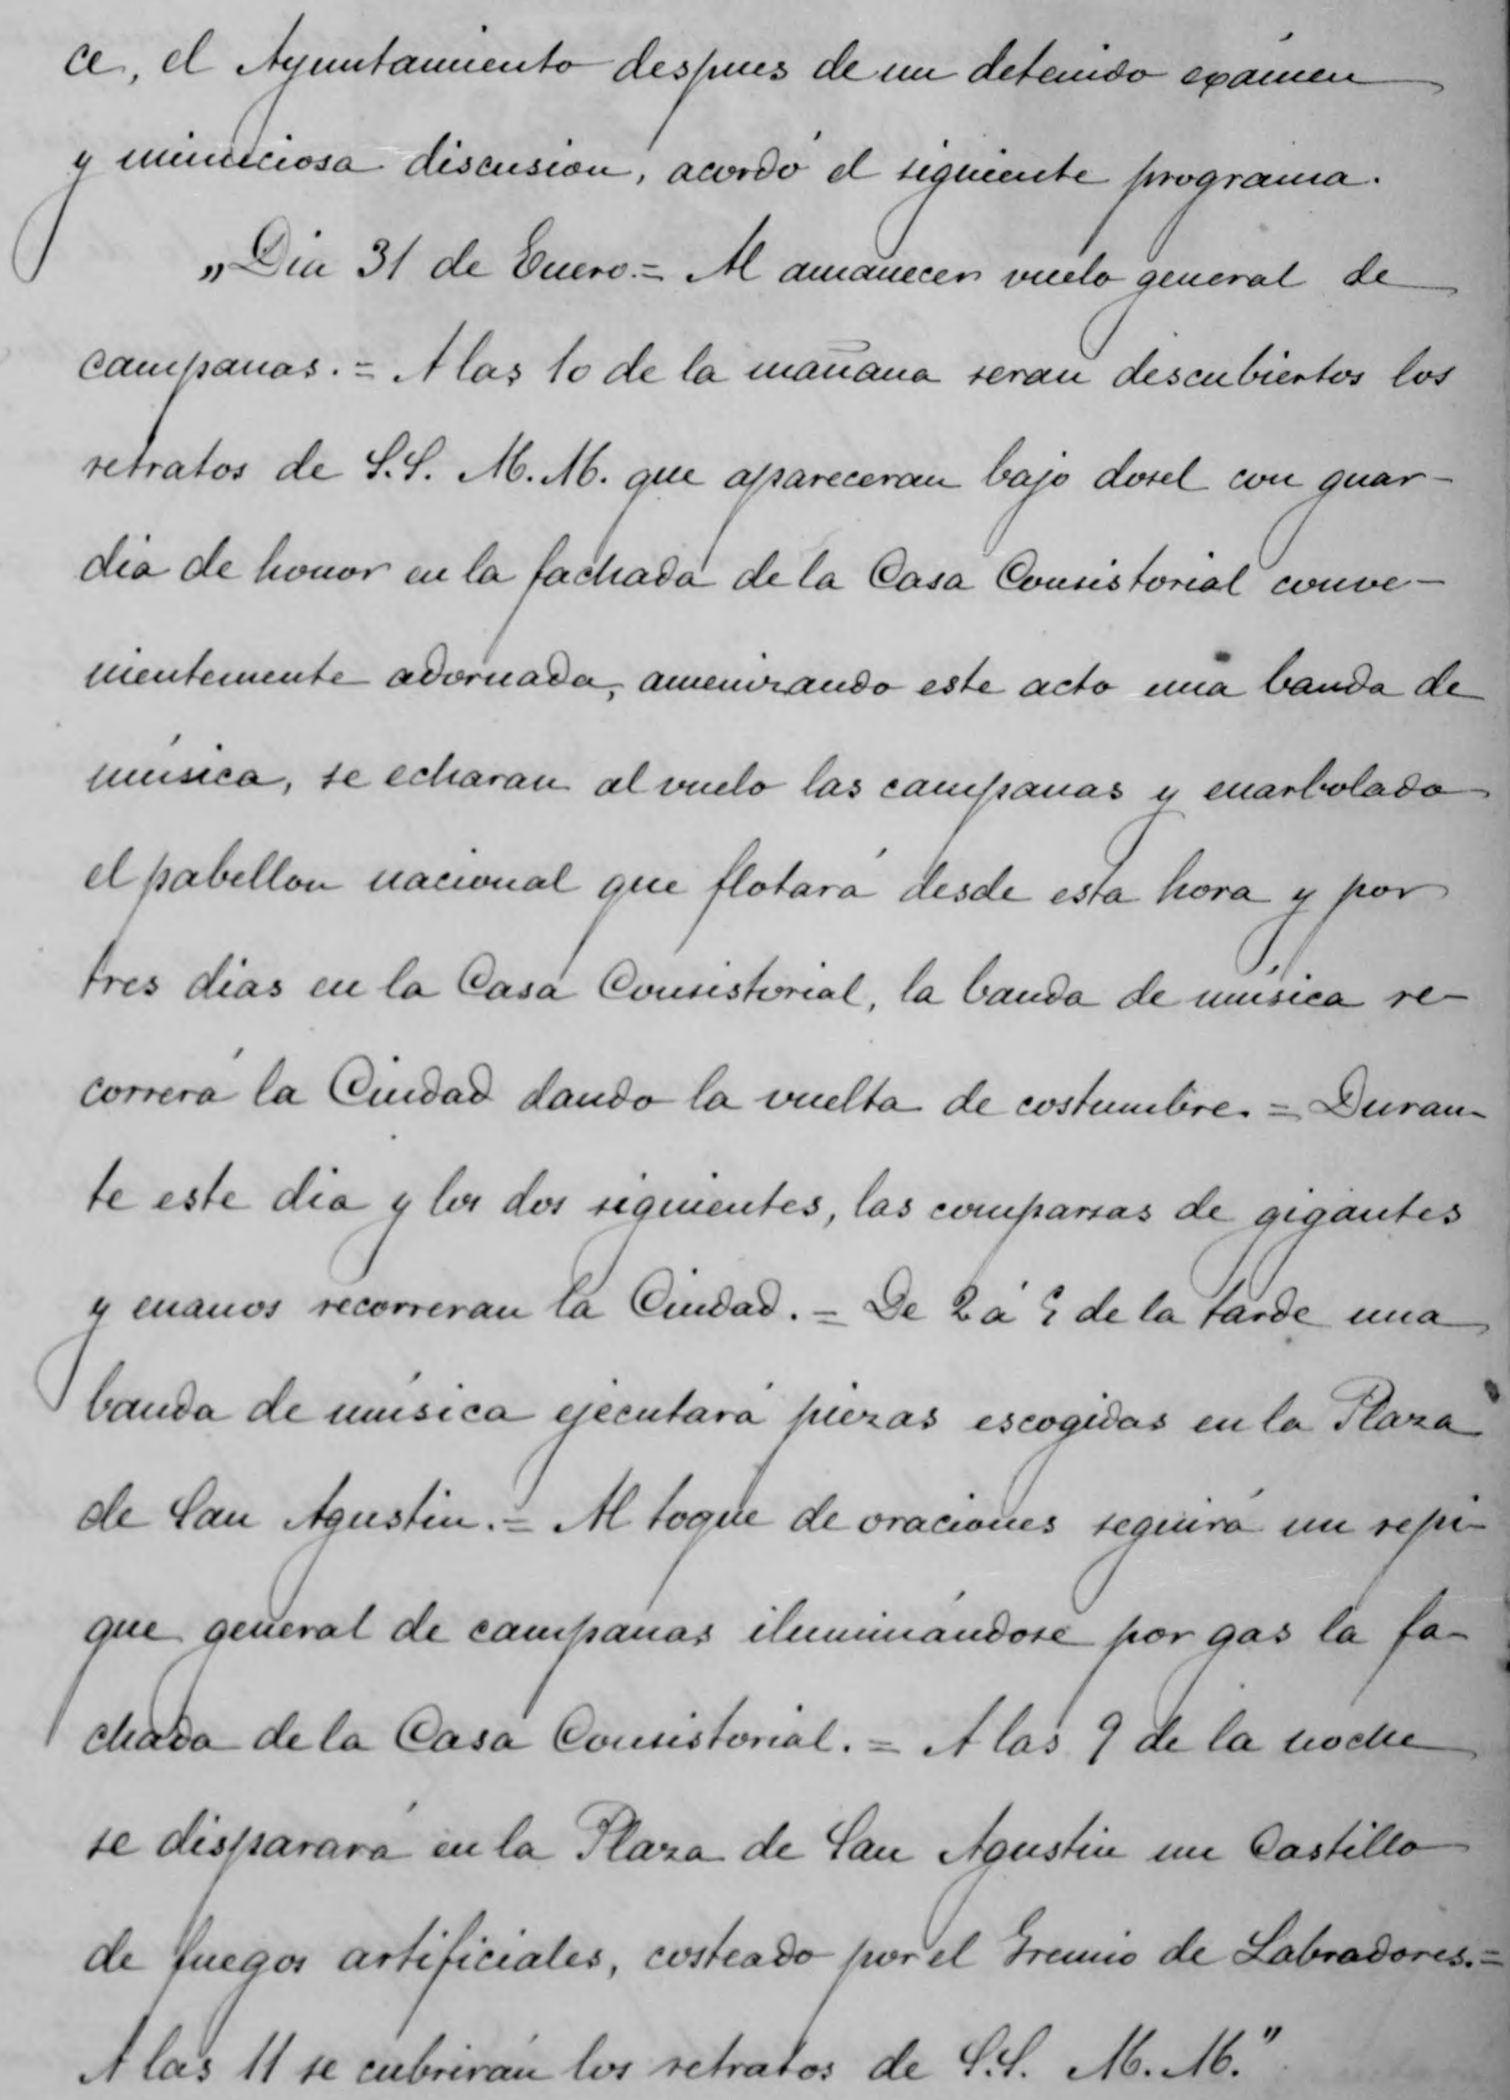 ce, el Ayuntamiento despues de un detenido exámen
y minuciosa discusion, acordó el siguiente programa.
„Dia 31 de Enero.= Al amanecer vuelo general de
campanas.= A las 10 de la mañana seran descubiertos los
retratos de S.S. M.M. que apareceran bajo dosel con guar-
dia de honor en la fachada de la Casa Consistorial conve-
nientemente adornada, amenizando este acto una banda de
música, se echaran al vuelo las campanas y enarbolado
el pabellon nacional que flotará desde esta hora y por
tres dias en la Casa Consistorial, la banda de música re-
correrá la Ciudad dando la vuelta de costumbre.= Duran-
te este dia y los dos siguientes, las comparsas de gigantes
y enanos recorreran la Ciudad.= De 2 á de la tarde una
banda de música ejecutará piezas escogidas en la Plaza
de San Agustin.= Al toque de oraciones seguirá un repi-
que general de campanas iluminándose por gas la fa-
chada de la Casa Consistorial.= A las 9 de la noche
se disparará en la Plaza de San Agustin un Castillo
de fuegos artificiales, costeado por el Gremio de Labradores.=
A las 11 se cubrirán los retratos de S.S. M.M."